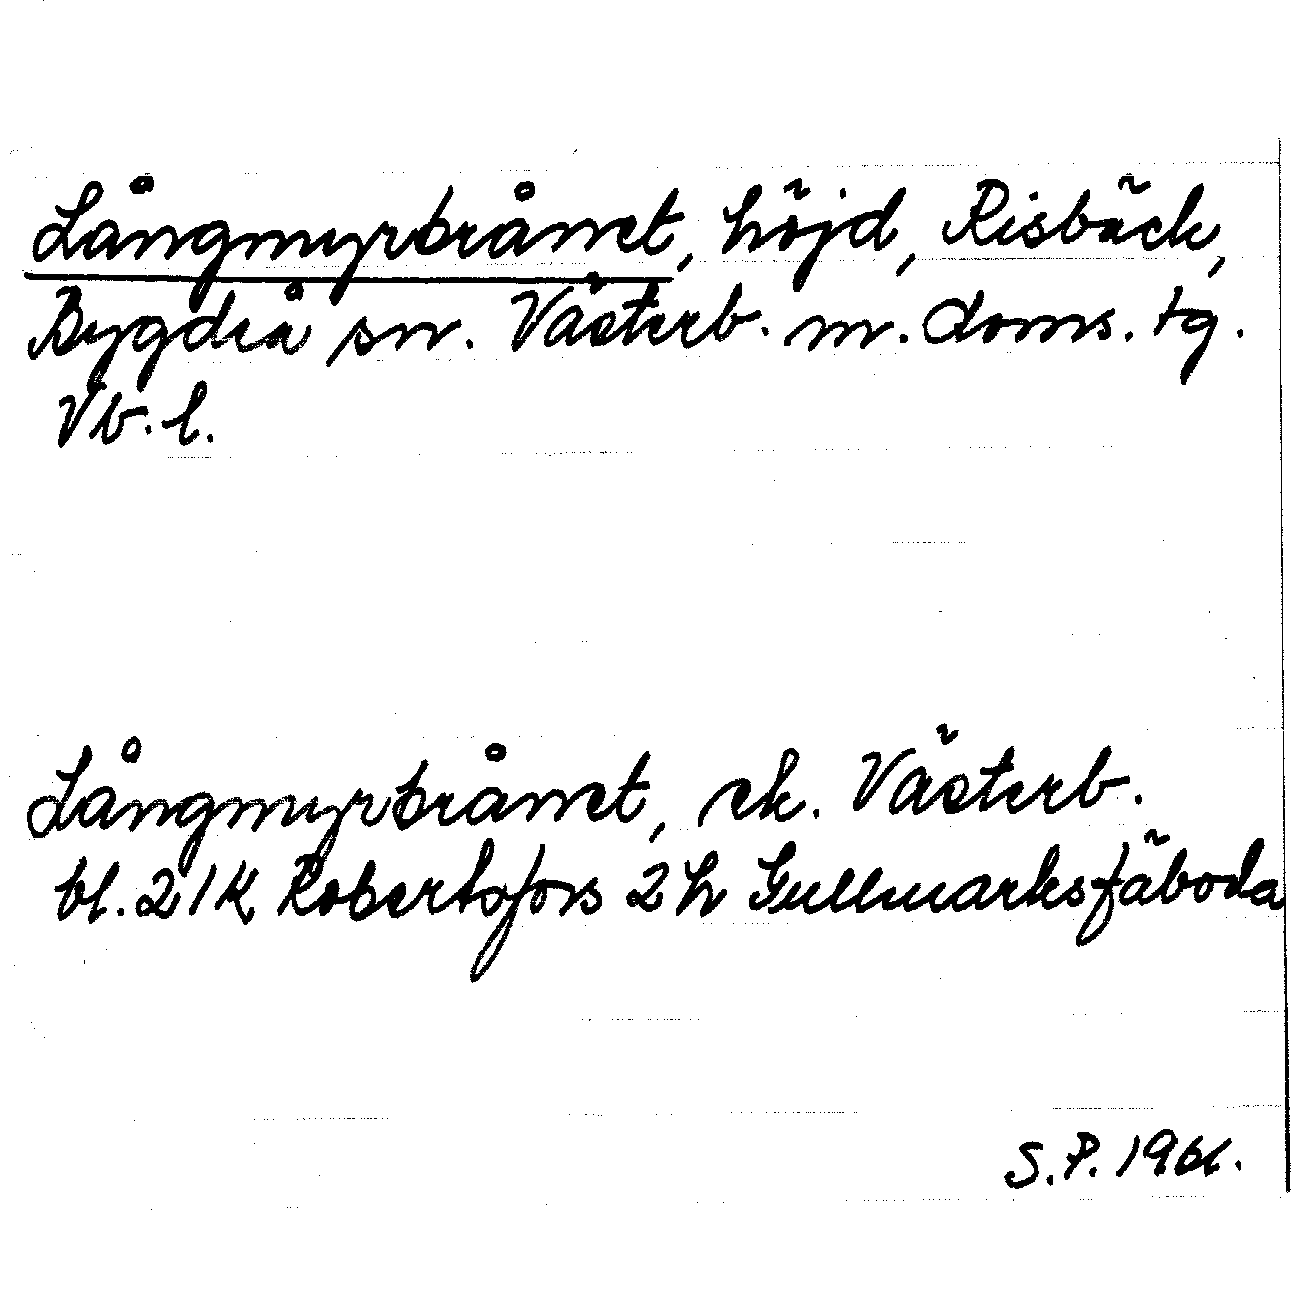 Långmyrbrånet, höjd, Risbäck,
Bygdeå sn. Västerb. m. doms. tg.
Vb. l.
Långmyrbrånet, ek. Västerb.
bl. 21K Robertsfors 2h Gullmarksfäboda
S.P. 1966.